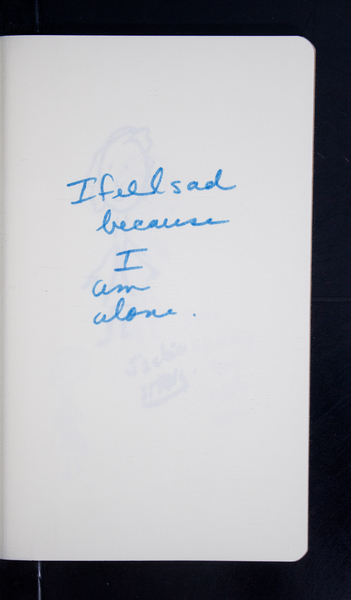 I feel sad
because
I
am
alone.